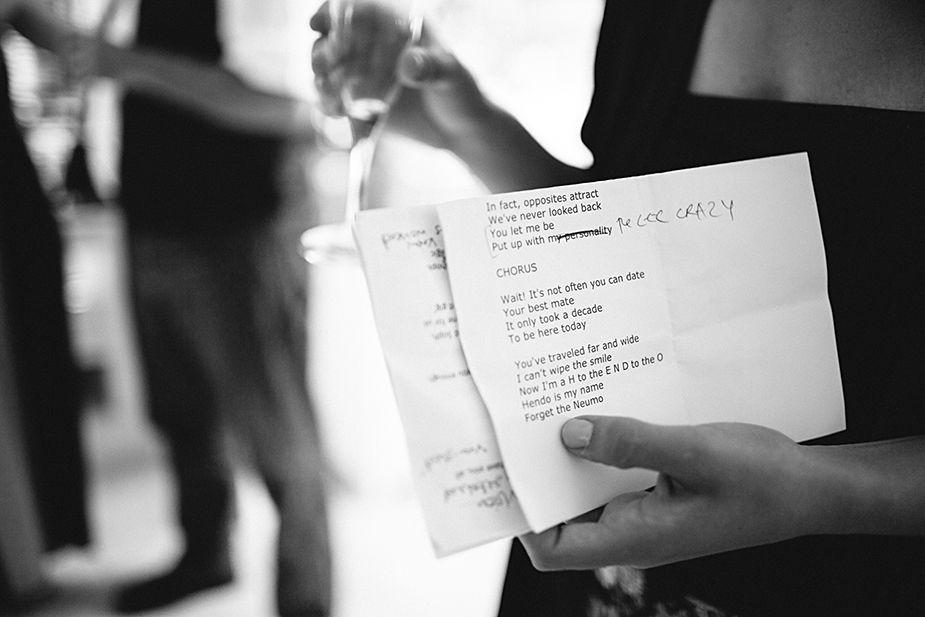 In fact, opposites attract
We've never looked back
You let me be
Put up with my personality CRAZY
CHORUS
Wait! It's not often you can date
Your best mate
It only took a decade
To be here today
You've traveled far and wide
I can't wipe the smile
Now I'm a H to the E N D to the O
Hendo is my name
Forget the Neumo